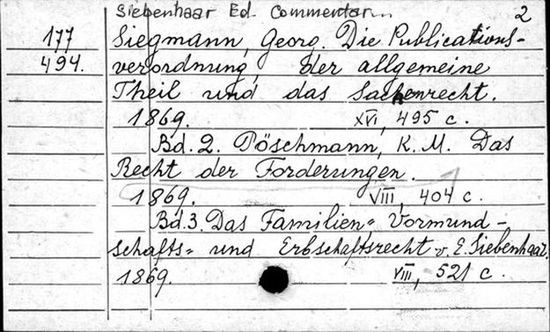 Siebenhaar Ed. Commentar... 2
177 Siegmann, Georg. Die Publications-
494. verordnung, der allgemeine
Theil und das Sachenrecht.
1869. XVI, 495 c.
Bd. 2. Pöschmann, K. M. Das
Recht der Forderungen.
1869. VIII, 404 c.
Bd. 3. Das Familien-, Vormund-
schafts- und Erbschaftsrecht v. E. Siebenhaar.
1869. VIII, 521 c.